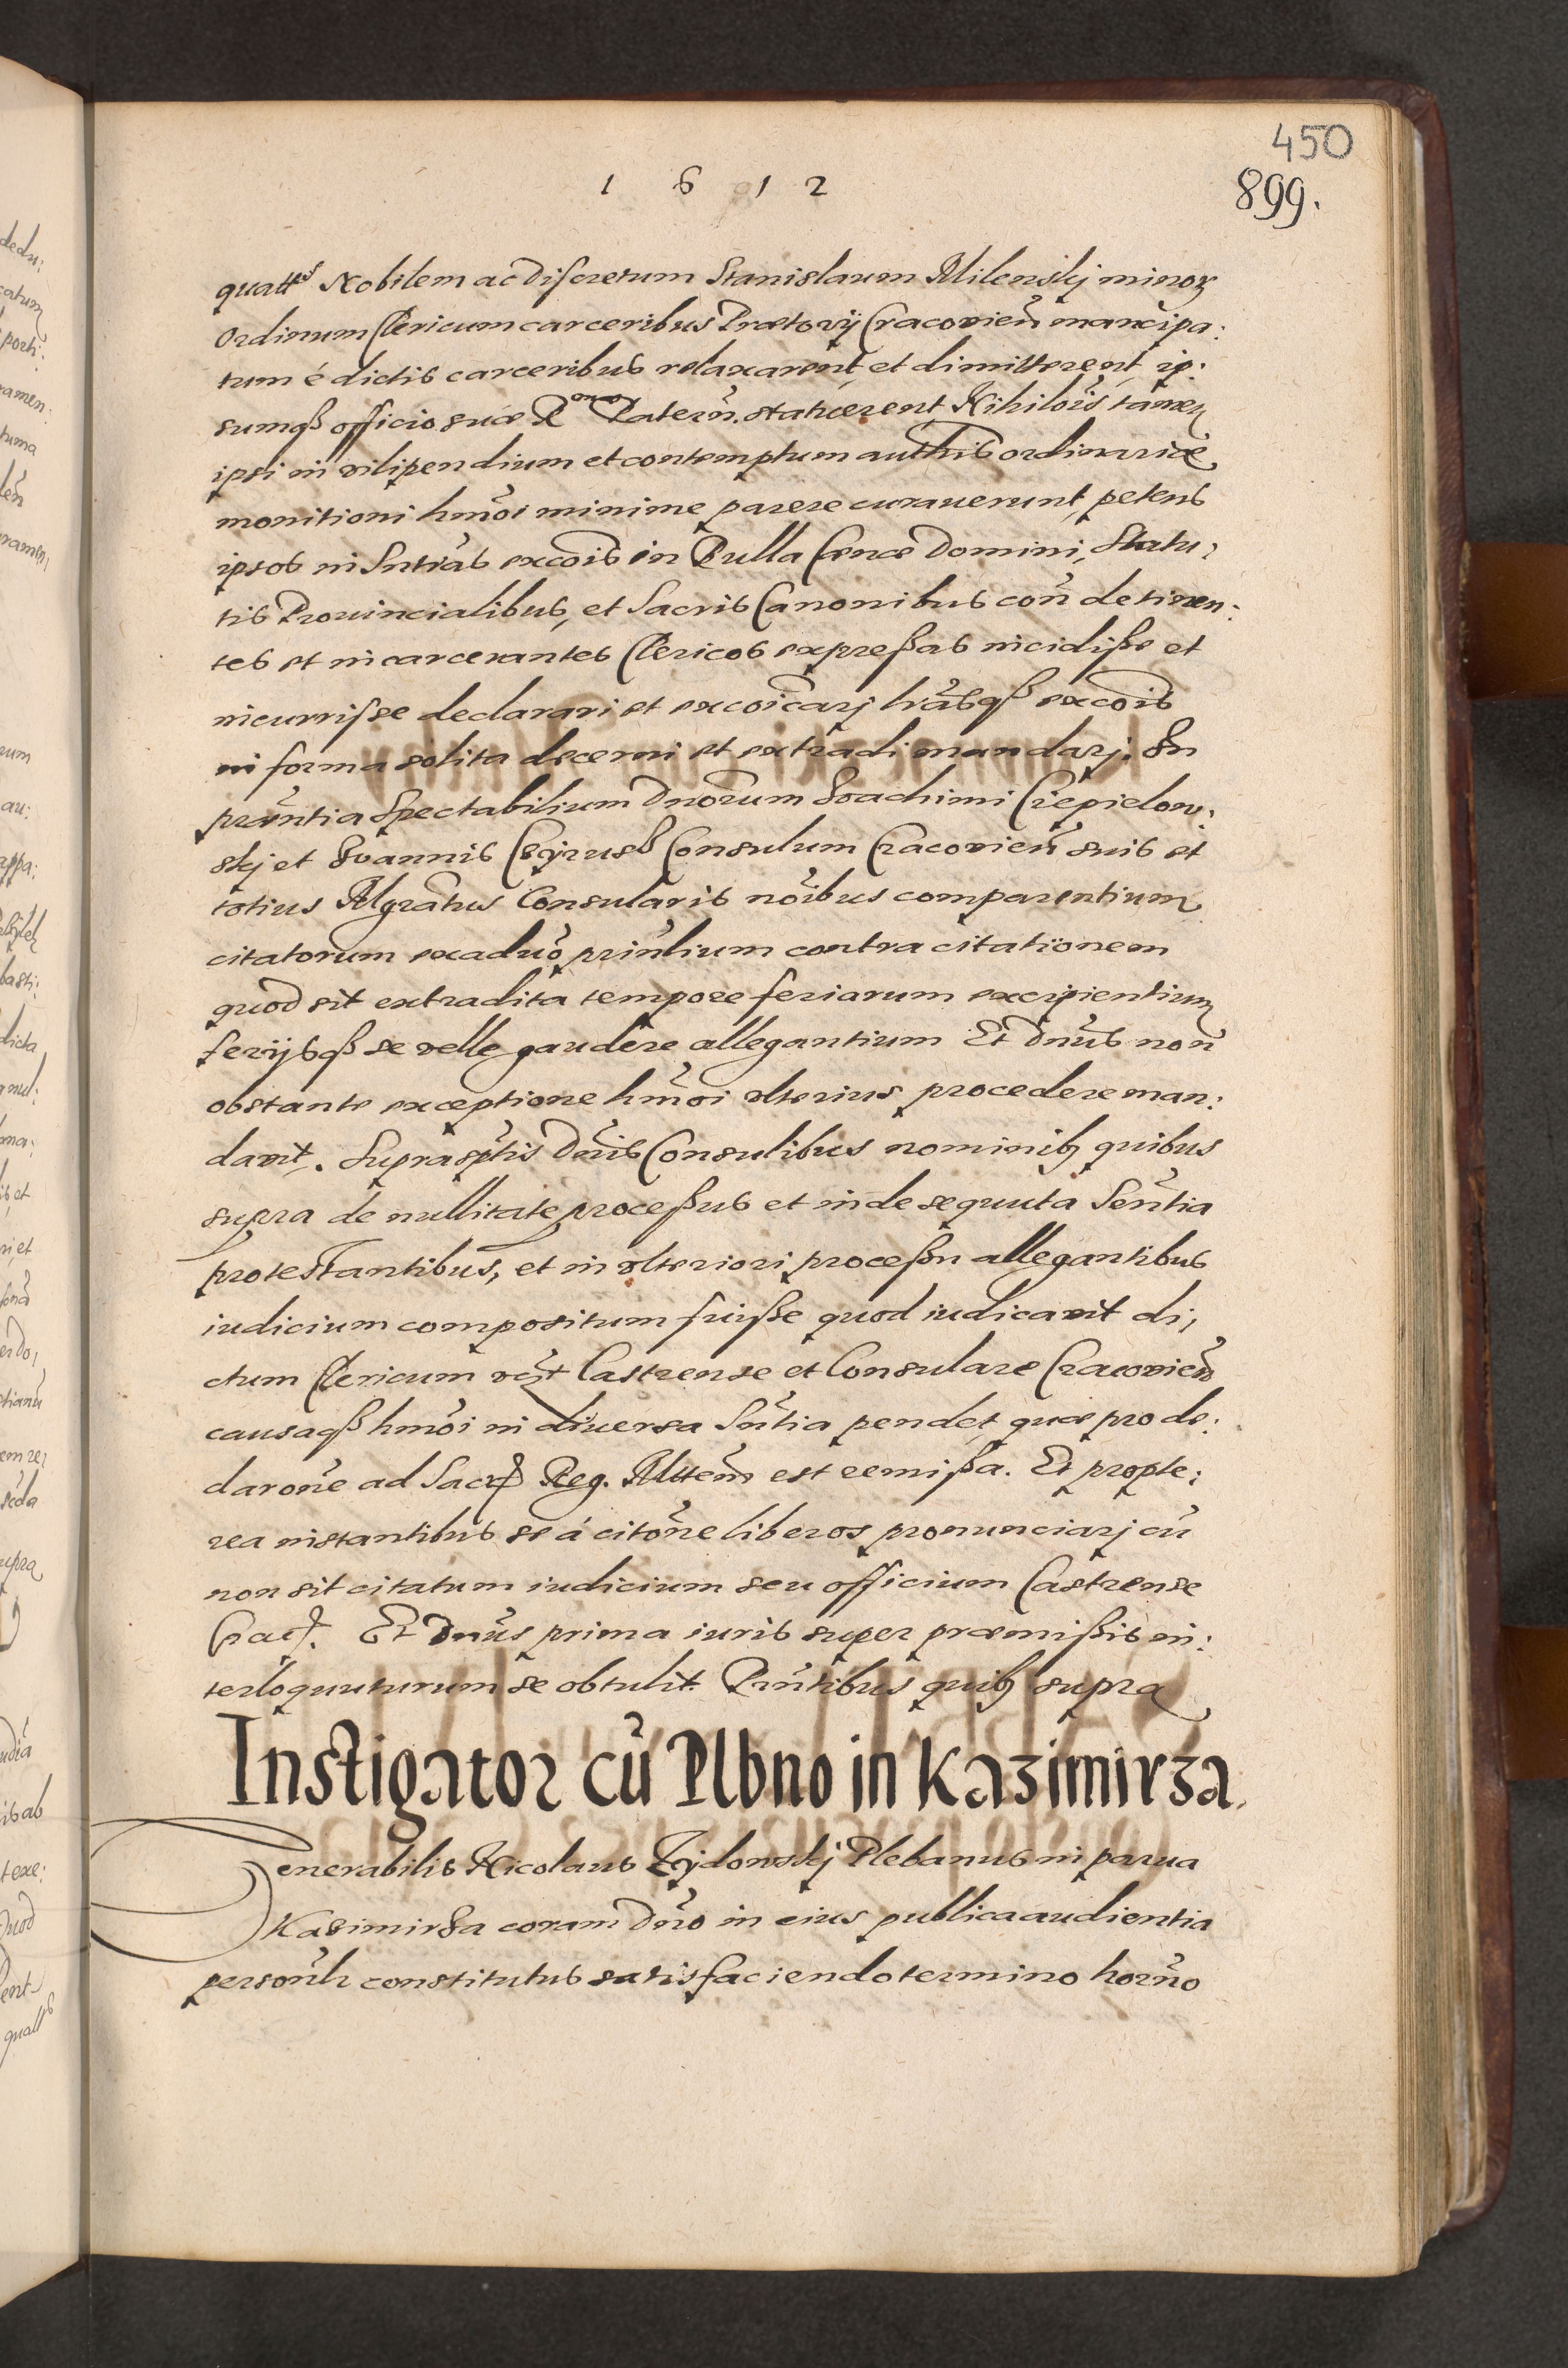 450
1 6 1 2
899.
quatt͂s Nobilem ac discretum Stanislaum Milenskj minor͂
Ordinum Clericum carceribus Prætorij Cracouien̄ mancipa:
tum é dictis carceribus relaxarent, et dimitterent, ip:
sumq̃ officio suæ R Patern̄. statuerent, Nihilo͠is tamen
ipsi in vilipendium et contemptum auth͠is ordinariæ
monitioni hm̃oi minime parere curauerunt, petens
ipsos in Sn̄tias exc͠ois in Bulla Cænæ Domini, Statu:
tis Prouincialibus, et Sacris Canonibus con̄ detinen:
tes et incarcerantes Clericos expreßas incidiße et
incurrisse declarari et exco͠icarj l͠rasq̃ exc͠ois
in forma solita decerni et extradi mandarj. In
præn̄tia Spectabilium Dn̄orum Joachimi Ciepielow:
skj et Joannis Cyrus Consulum Cracouien̄ suis et
totius Mgrātus Consularis no͠ibus comparentium
citatorum ex aduo prin̄lium contra citationem
quod sit extradita tempore feriarum excipientium
ferijsq̃ se velle gaudere allegantium Et Dn̄us non
obstante exceptione hm̃oi vlterius procedere man:
dauit. Suprasp̃tis Dn̄is Consulibus nominib9 quibus
supra de nullitate proceßus et inde sequuta Sen̄tia
protestantibus, et in vlteriori proceßu allegantibus
iudicium compositum fuiße quod iudicauit di:
ctum Clericum vt Castrense et Consulare Cracouien̄
causaq̃ hm̃oi in diuersa Sn̄tia pendet, quæ pro de:
clarōne ad Sacr̃ Reg. Mttem est remißa. Et propte:
rea instantibus se á citōne liberos pronunciarj cū
non sit citatum iudicium seu officium Castrense
Crac̃. Et Dn̄us prima iuris super præmißis in:
terloquuturum se obtulit. Prn̄tibus quib9 supra
Instigator cū Plbno in Kazimirza.
Venerabilis Nicolaus Zydowskj Plebanus in parua
Kazimirza coram Dn̄o in eius publica audientia
person̄lr constitutus satisfaciendo termino horn̄o